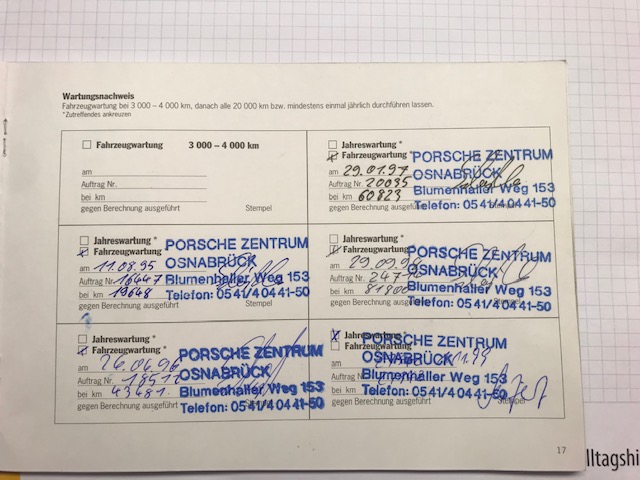 Wartungsnachweis
Fahrzeugwartung bei 3 000 – 4 000 km, danach alle 20 000 km bzw. mindestens einmal jährlich durchführen lassen.
*Zutreffendes ankreuzen
Fahrzeugwartung 3 000 – 4 000 km
am
Auftrag Nr.
bei km
gegen Berechnung ausgeführt Stempel
Jahreswartung *
Fahrzeugwartung *
am 29.01.97
Auftrag Nr. 20035
bei km 60823
gegen Berechnung ausgeführt
PORSCHE ZENTRUM
OSNABRÜCK
Blumenhaller Weg 153
Telefon: 05 41/4 04 41-50
Jahreswartung *
Fahrzeugwartung
am 11.08.95
Auftrag Nr. 16447
bei km 19648
PORSCHE ZENTRUM
OSNABRÜCK
Blumenhaller Weg 153
Telefon: 05 41/4 04 41-50
Jahreswartung *
Fahrzeugwartung
am 29.09.98
Auftrag Nr.
bei km 81800
gegen Berechnung ausgeführt
PORSCHE ZENTRUM
OSNABRÜCK
Blumenhaller Weg 153
Telefon: 05 41/4 04 41-50
Jahreswartung *
Fahrzeugwartung *
am 26.06.96
Auftrag Nr.
bei km 43481
gegen Berechnung ausgeführt
PORSCHE ZENTRUM
OSNABRÜCK
Blumenhaller Weg 153
Telefon: 05 41/4 04 41-50
Jahreswartung
Fahrzeugwartung
am
Auftrag Nr.
bei km
gegen Berechnung ausgeführt Stempel
PORSCHE ZENTRUM
OSNABRÜCK
Blumenhaller Weg 153
Telefon: 05 41/4 04 41-50
17
lltagshi